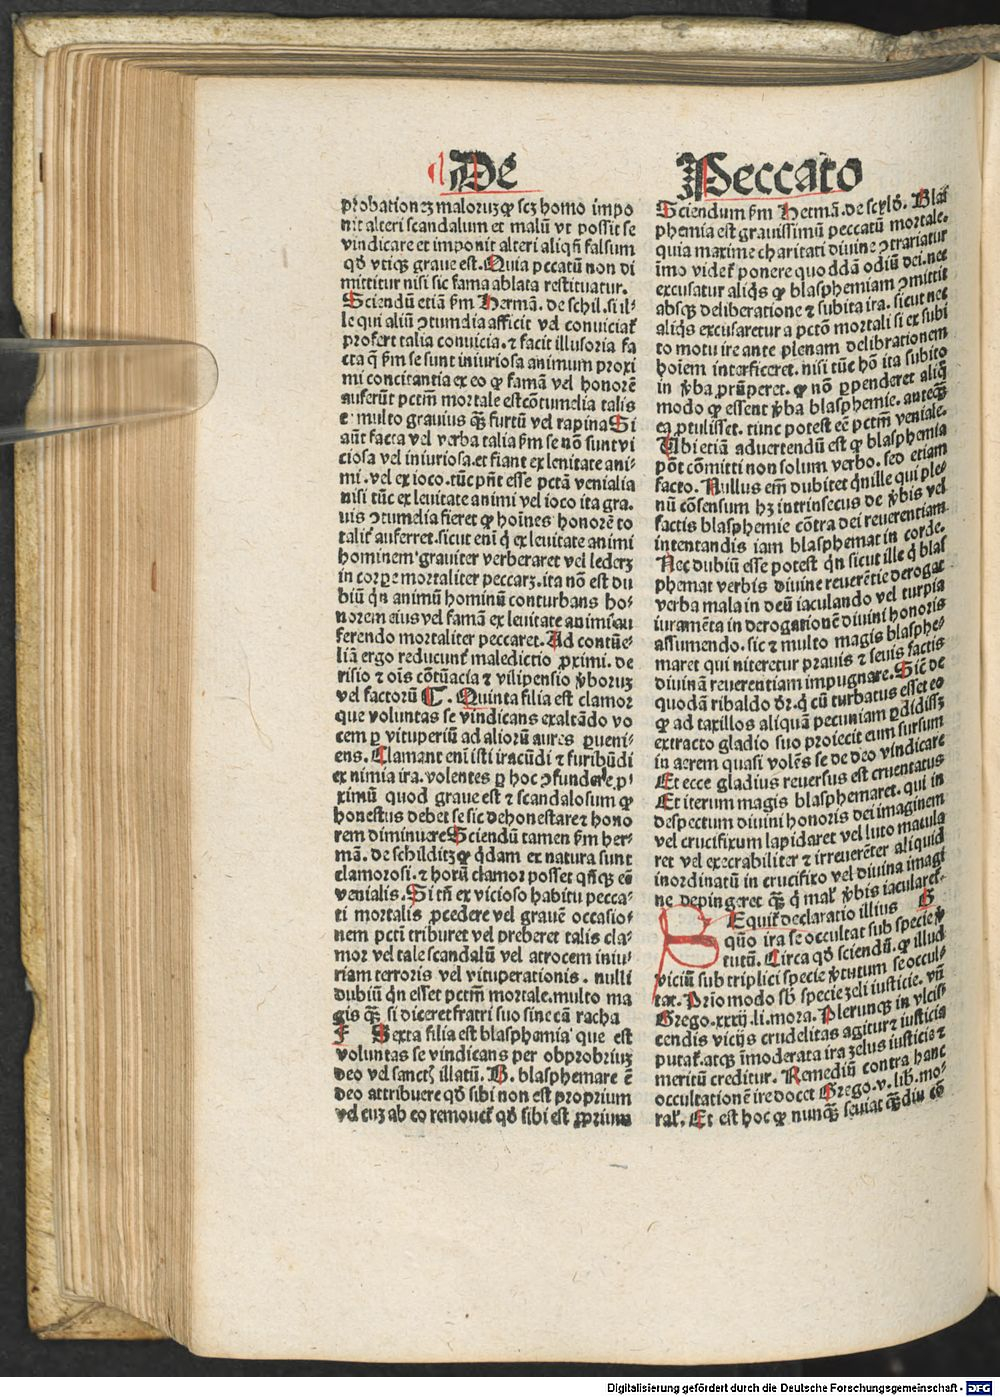 De
Peccato
probationez maloruz ꝙ scz homo impo
nit alteri scandalum et malū vt possit se
vindicare et imponit alteri aliqñ falsum
qđ vtiqꝫ graue est. Quia pccatū non di
mittitur nisi sic fama ablata restituatur.
Sciendū etiā ẜm Hermā. de schil. si il⸗
le qui aliū ↄtumelia afficit vel conuiciat᷑
profert talia conuicia. ⁊ facit illusoria fa
cta q̄ ẜm se sunt iniuriosa animum proxi
mi concitantia ex eo ꝙ famā vel honorē
auferūt pctm̄ mortale est cōtumelia talis
⁊ multo grauius qꝫ̄ furtū vel rapina Si
aūt facta vel verba talia ẜm se nō sunt vi
ciosa vel iniuriosa. et fiant ex lenitate ani⸗
mi. vel ex ioco. tūc pn̄t esse pctā venialia
nisi tūc ex leuitate animi vel ioco ita gra.
uis ↄtumelia fieret ꝙ hoīnes honorē to
talit᷑ auferret. sicut eni q̇ ex leuitate animi
hominem grauiter verberaret vel lederꝫ
in corpe mortaliter peccarꝫ. ita nō est du
biū qn̄ animū hominū conturbans ho⸗
norem eius vel famā ex leuitate animi au
ferendo mortaliter peccaret. Ad contūe⸗
liā ergo reducunt᷑ maledictio ꝓximi. de
risio ⁊ oīs cōtūacia ⁊ vilipensio v̓boruꝫ
vel factorū T. Quinta filia est clamor
que voluntas se vindicans exaltādo vo
cem ꝑ vituperiū ad aliorū aures ꝑueni⸗
ens. Clamant enī isti iracūdi ⁊ furibūdi
ex nimia ira. volentes ꝑ hoc ↄfundere ꝓ⸗
ximū quod graue est ⁊ scandalosum ꝙ
honestus debet se sic dehonestare ⁊ hono
rem diminuere Sciendū tamen ẜm her⸗
mā. de schilditz ꝙ q̇dam ex natura sunt
clamorosi. ⁊ horū clamor posset qn̄qꝫ eē
venialis. Si tn̄ ex vicioso habitu pecca⸗
ti mortalis ꝓcedere vel grauē occasio⸗
nem pctī triburet vel preberet talis cla⸗
mor vel tale scandalū vel atrocem iniu⸗
riam terroris vel vituperationis. nulli
dubiū qn̄ esset pctm̄ mortale. multo ma
gis qꝫ̄ si diceret fratri suo sine cā racha
F Sexta filia est blasphemia que est
voluntas se vindicans per obprobriuꝫ
deo vel sanctꝭ illatū. B. blasphemare ē
deo attribuere qđ sibi non est proprium
vel euꝫ ab eo remouet᷑ qđ sibi est ꝓprium
Sciendum ẜm Hermā. de scꝑlđ. Blas
phemia est grauissimū peccatū mortale.
quia maxime charitati diuine ↄtrariatur
imo videt᷑ ponere quoddā odiū dei. nec
excusatur aliqͥs ꝙ blasphemiam ↄmittit
absqꝫ deliberatione ⁊ subita ira. sicut nec
aliqͥs excusaretur a pctō mortali si ex subi
to motu ire ante plenam delibrationem
hoīem interficeret. nisi tūc hō ita subito
in v̓ba prūperet. ꝙ nō ꝑpenderet aliq̄
modo ꝙ essent v̓ba blasphemie. anteqꝫ̄
ea ꝓtulisset. tunc potest eē pctm̄ veniale.
Ubi etiā aduertendū est ꝙ blasphemia
pōt cōmitti non solum verbo. sed etiam
facto. Nullus em̄ dubitet qn̄ ille qui ple⸗
nū cōsensum hꝫ intrinsecus de v̓bis vel
factis blasphemie cōtra dei reuerentiam
intentandis iam blasphemat in corde.
Nec dubiū esse potest qn̄ sicut ille q̇ blas
phemat verbis diuine reuerētie derogat
verba mala in deū iaculando vel turpia
iuramēta in derogationē diuini honoris
assumendo. sic ⁊ multo magis blasphe⸗
maret qui niteretur prauis ⁊ seuis factis
diuinā reuerentiam impugnare. Sic̄ de
quodā ribaldo dr̄. q̇ cū turbatus esset eo
ꝙ ad taxillos aliquā pecuniam ꝑdidissꝫ
extracto gladio suo proiecit eum sursum
in aerem quasi volēs se de deo vindicare
Et ecce gladius reuersus est cruentatus
Et iterum magis blasphemaret. qui in
despectum diuini honoris dei imaginem
vel crucifixum lapidaret vel luto macula
ret vel execrabiliter ⁊ irreuerēter aliquid
inordinatū in crucifixo vel diuina imagi
ne depingeret qꝫ̄ q̇ mal᷑ v̓bis iacularet᷑.
SEquit᷑ declaratio illius G
quō ira se occultat sub specie v̓
tutū. Circa qđ sciendū. ꝙ illud
viciū sub triplici specie v̓tutum se occul⸗
tat. Prīo modo sb̄ specie zeli iusticie. vn̄
Grego. xxxij. li. mora. Plerunqꝫ in vlcis⸗
cendis vicijs crudelitas agitur ⁊ iusticia
putat᷑. atqꝫ īmoderata ira zelus iusticie ⁊
meritū creditur. Remediū contra hanc
occultationē ire docet Grego. v. lib. mo⸗
ral᷑. Et est hoc ꝙ nunqꝫ̄ seuiat qꝫ̄diu cō
Digitalisierung gefördert durch die Deutsche Forschungsgemeinschaft - DFG